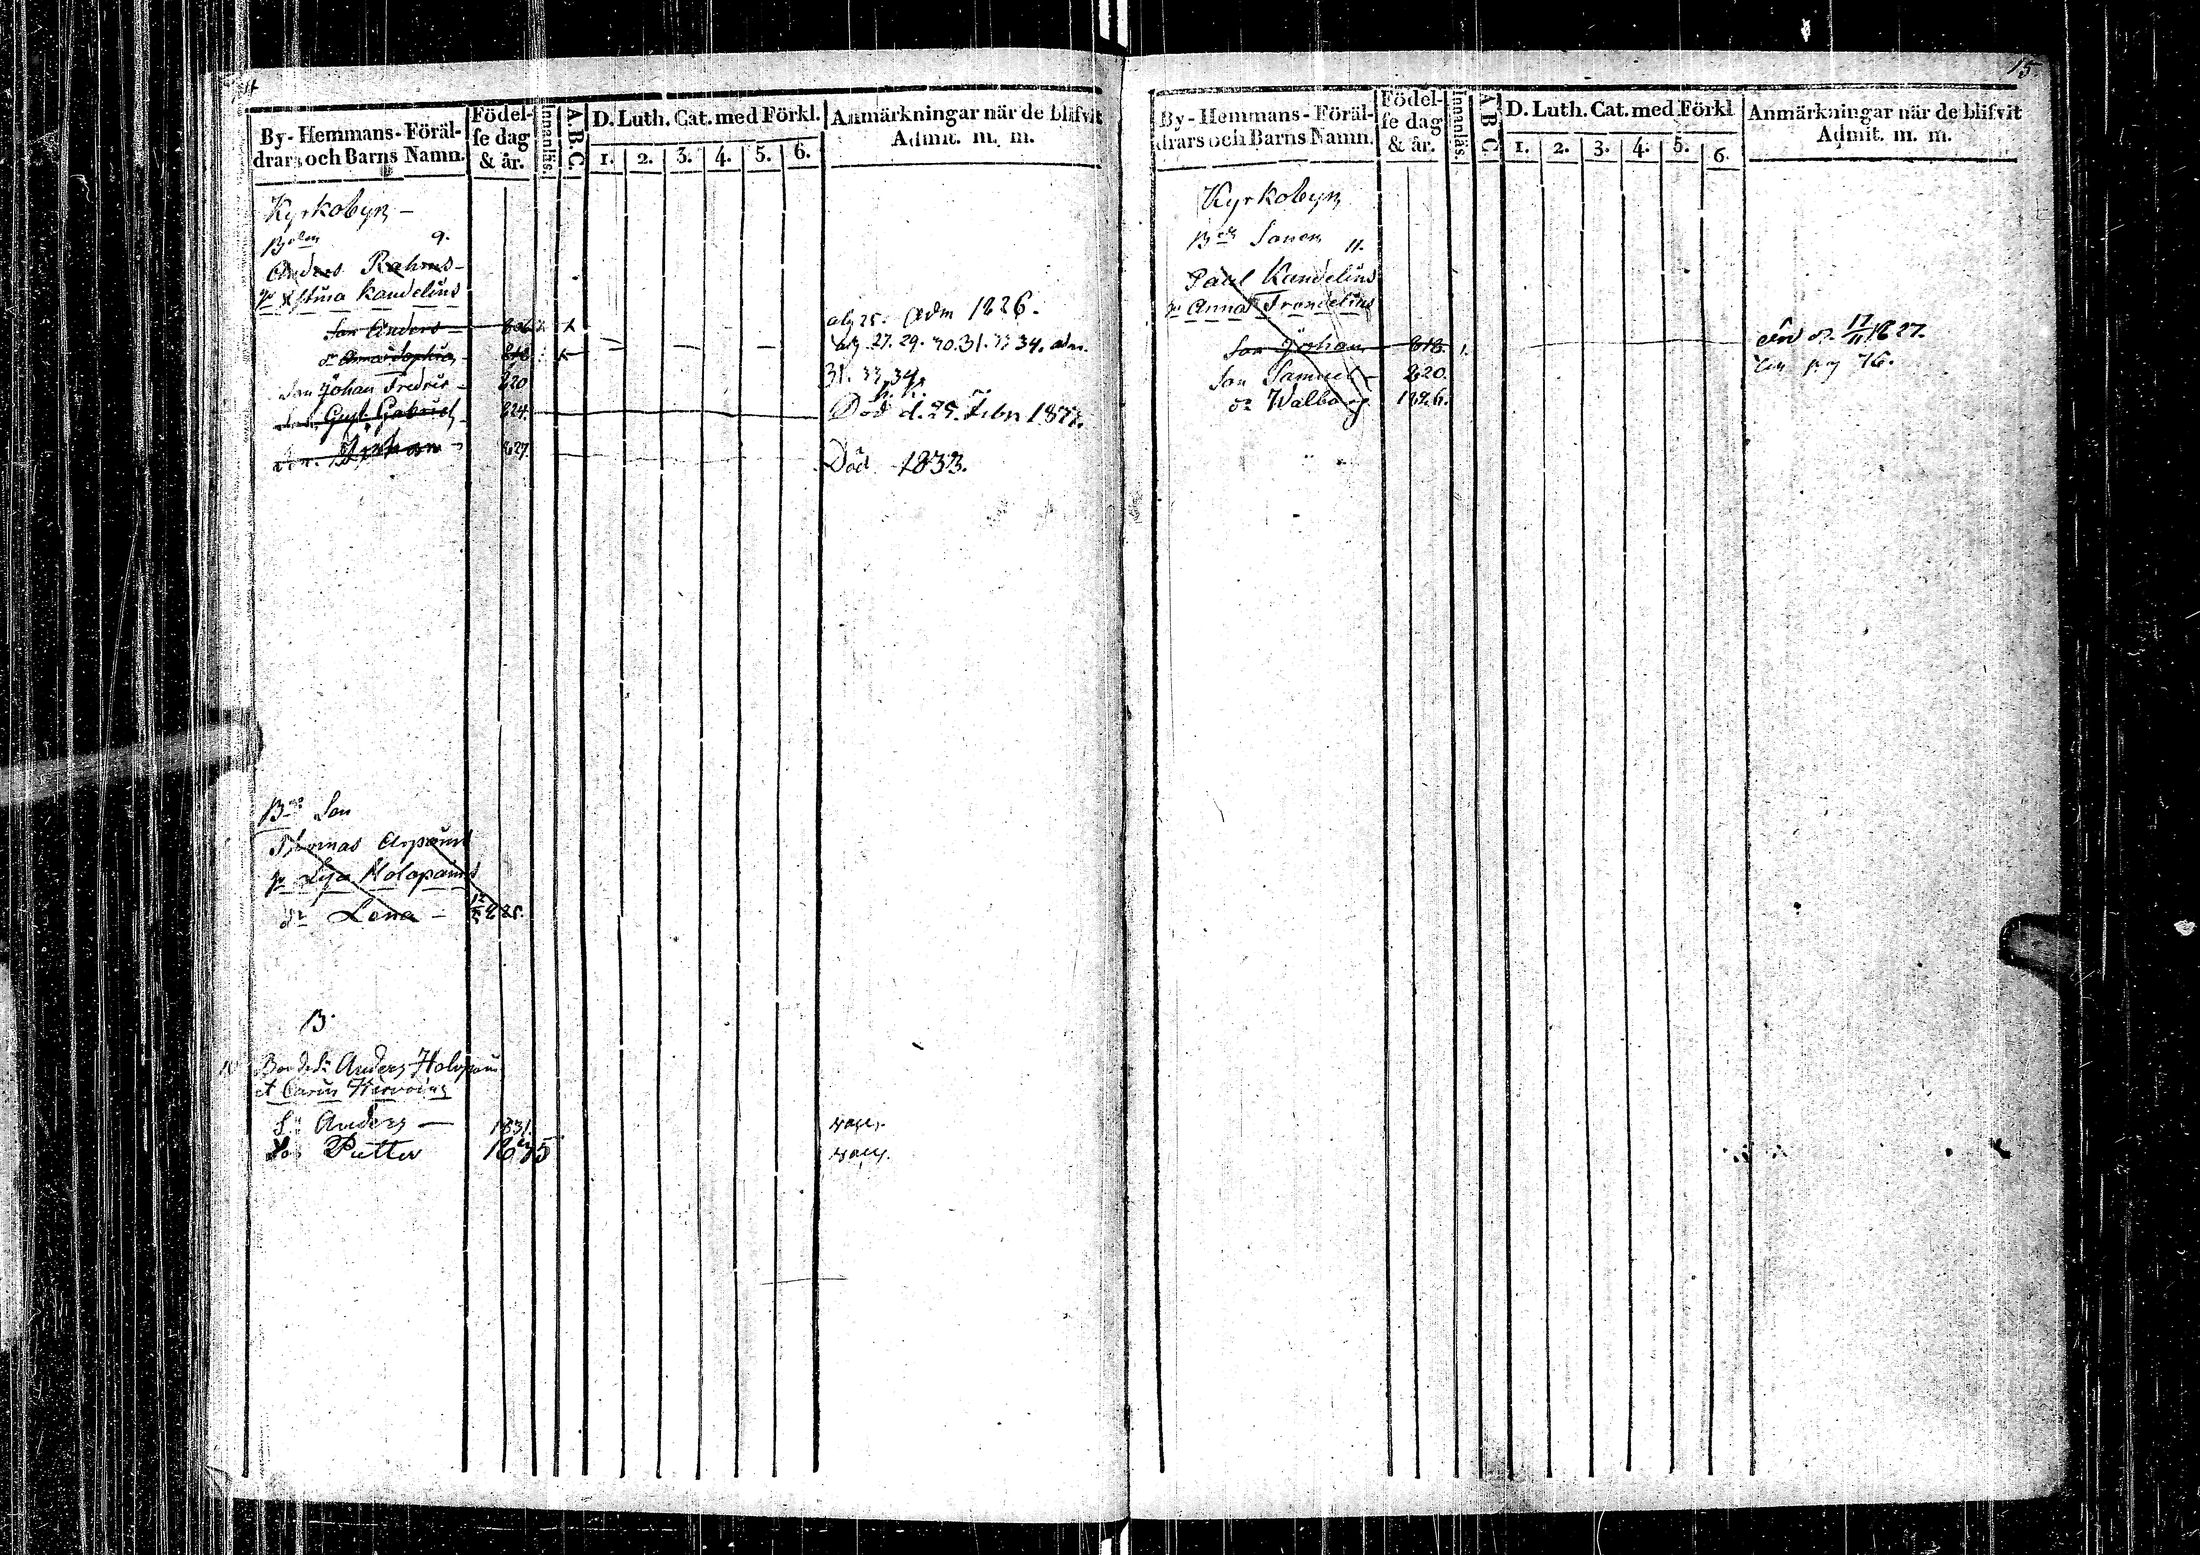 14
By- Hemmans- Föräl-
drars och Barns Namn.
Födel-
se dag
& år.
Innanläs.
A.B.C.
D. Luth. Cat. med Förkl.
1. 2. 3. 4. 5. 6.
Anmärkningar när de blifvit
Admit. m. m.
Kyrkobyn -
9.
Anders Rahnus -
Stina Kandelins
Son Anders 806 alz 25. Adm 1826.
dr Anna Sophia 818 alz 27. 29. 30. 31. 33 34. adm.
Son Johan Fredric - 820 31. 33. 34.
Gust. Gabriel 824. Död d. 25. Febr 1833.
Son. Johan - 827. Död 1833.
Bds Son
Thomas
Lisa Holopainus
dr Lena - 825.
B.
10 Anders Holopain
et Carin
S: Anders - 1831.
Petter 1835
15
By- Hemmans- Föräl-
drars och Barns Namn.
Födel-
se dag
& år.
Innanläs.
A B C.
D. Luth. Cat. med Förkl
1. 2. 3. 4. 5. 6.
Anmärkningar när de blifvit
Admit. m. m.
Kyrkobyn
Sonen 11.
Paul Kandelius
Anna
Son Johan 818. 1. död d. 17/11 1827.
Son Samuel - 820. pag 76.
dr Walborg 1826.